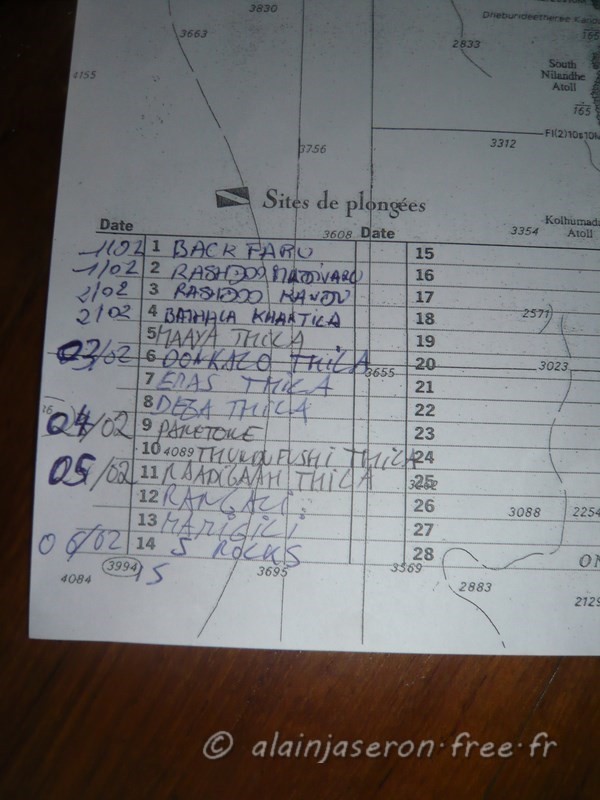 3830
3663
Dneburideetherse Kandu
165
2833
4155
South
Nilandhe
Atoll
165
Fl(2)10s10M
3312
3756
Sites de plongées
Kolhumadu
Atoll
3354
Date 3608 Date
1/02 1 BACK FARU 15
1/02 2 RASHDOO MADIVARU 16
2/02 3 RASHDOO KANDU 17
2/02 4 BATHALA KHANTILA 18 2571
5 MAAYA THILA 19
03/02 6 DONKALO THILA 20 3023
3655
7 EMAS THILA 21
16 8 DEGA THILA 22
04/02 9 PANETONE 23
10 4089 THUNDUFUSHI THILA 24
05/02 11 RAADIGAAH THILA 25
12 RANGALI 26 3088 2254
13 MAMIGILI 27
06/02 14 5 ROCKS 28
3994 15 3695 3569
4084 2883
2129
© alainjaseron.free.fr